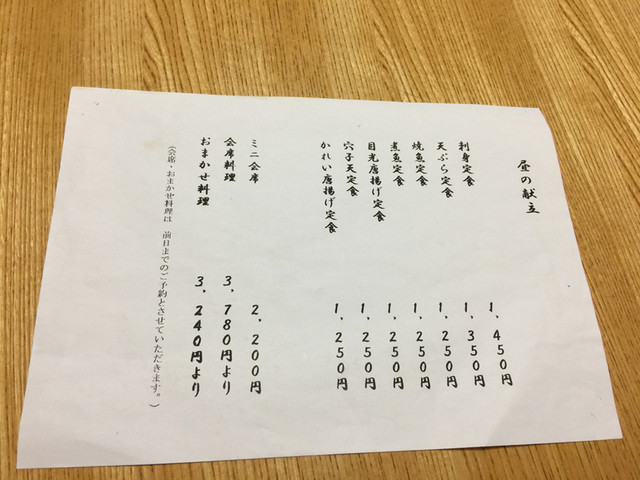 昼の献立
刺身定食 1,450円
天ぷら定食 1,350円
焼魚定食 1,250円
煮魚定食 1,250円
目光唐揚げ定食 1,250円
穴子天定食 1,250円
かれい唐揚げ定食 1,250円
ミニ会席 2,200円
会席料理 3,780円より
おまかせ料理 3,240円より
（会席・おまかせ料理は 前日までのご予約とさせていただきます。）